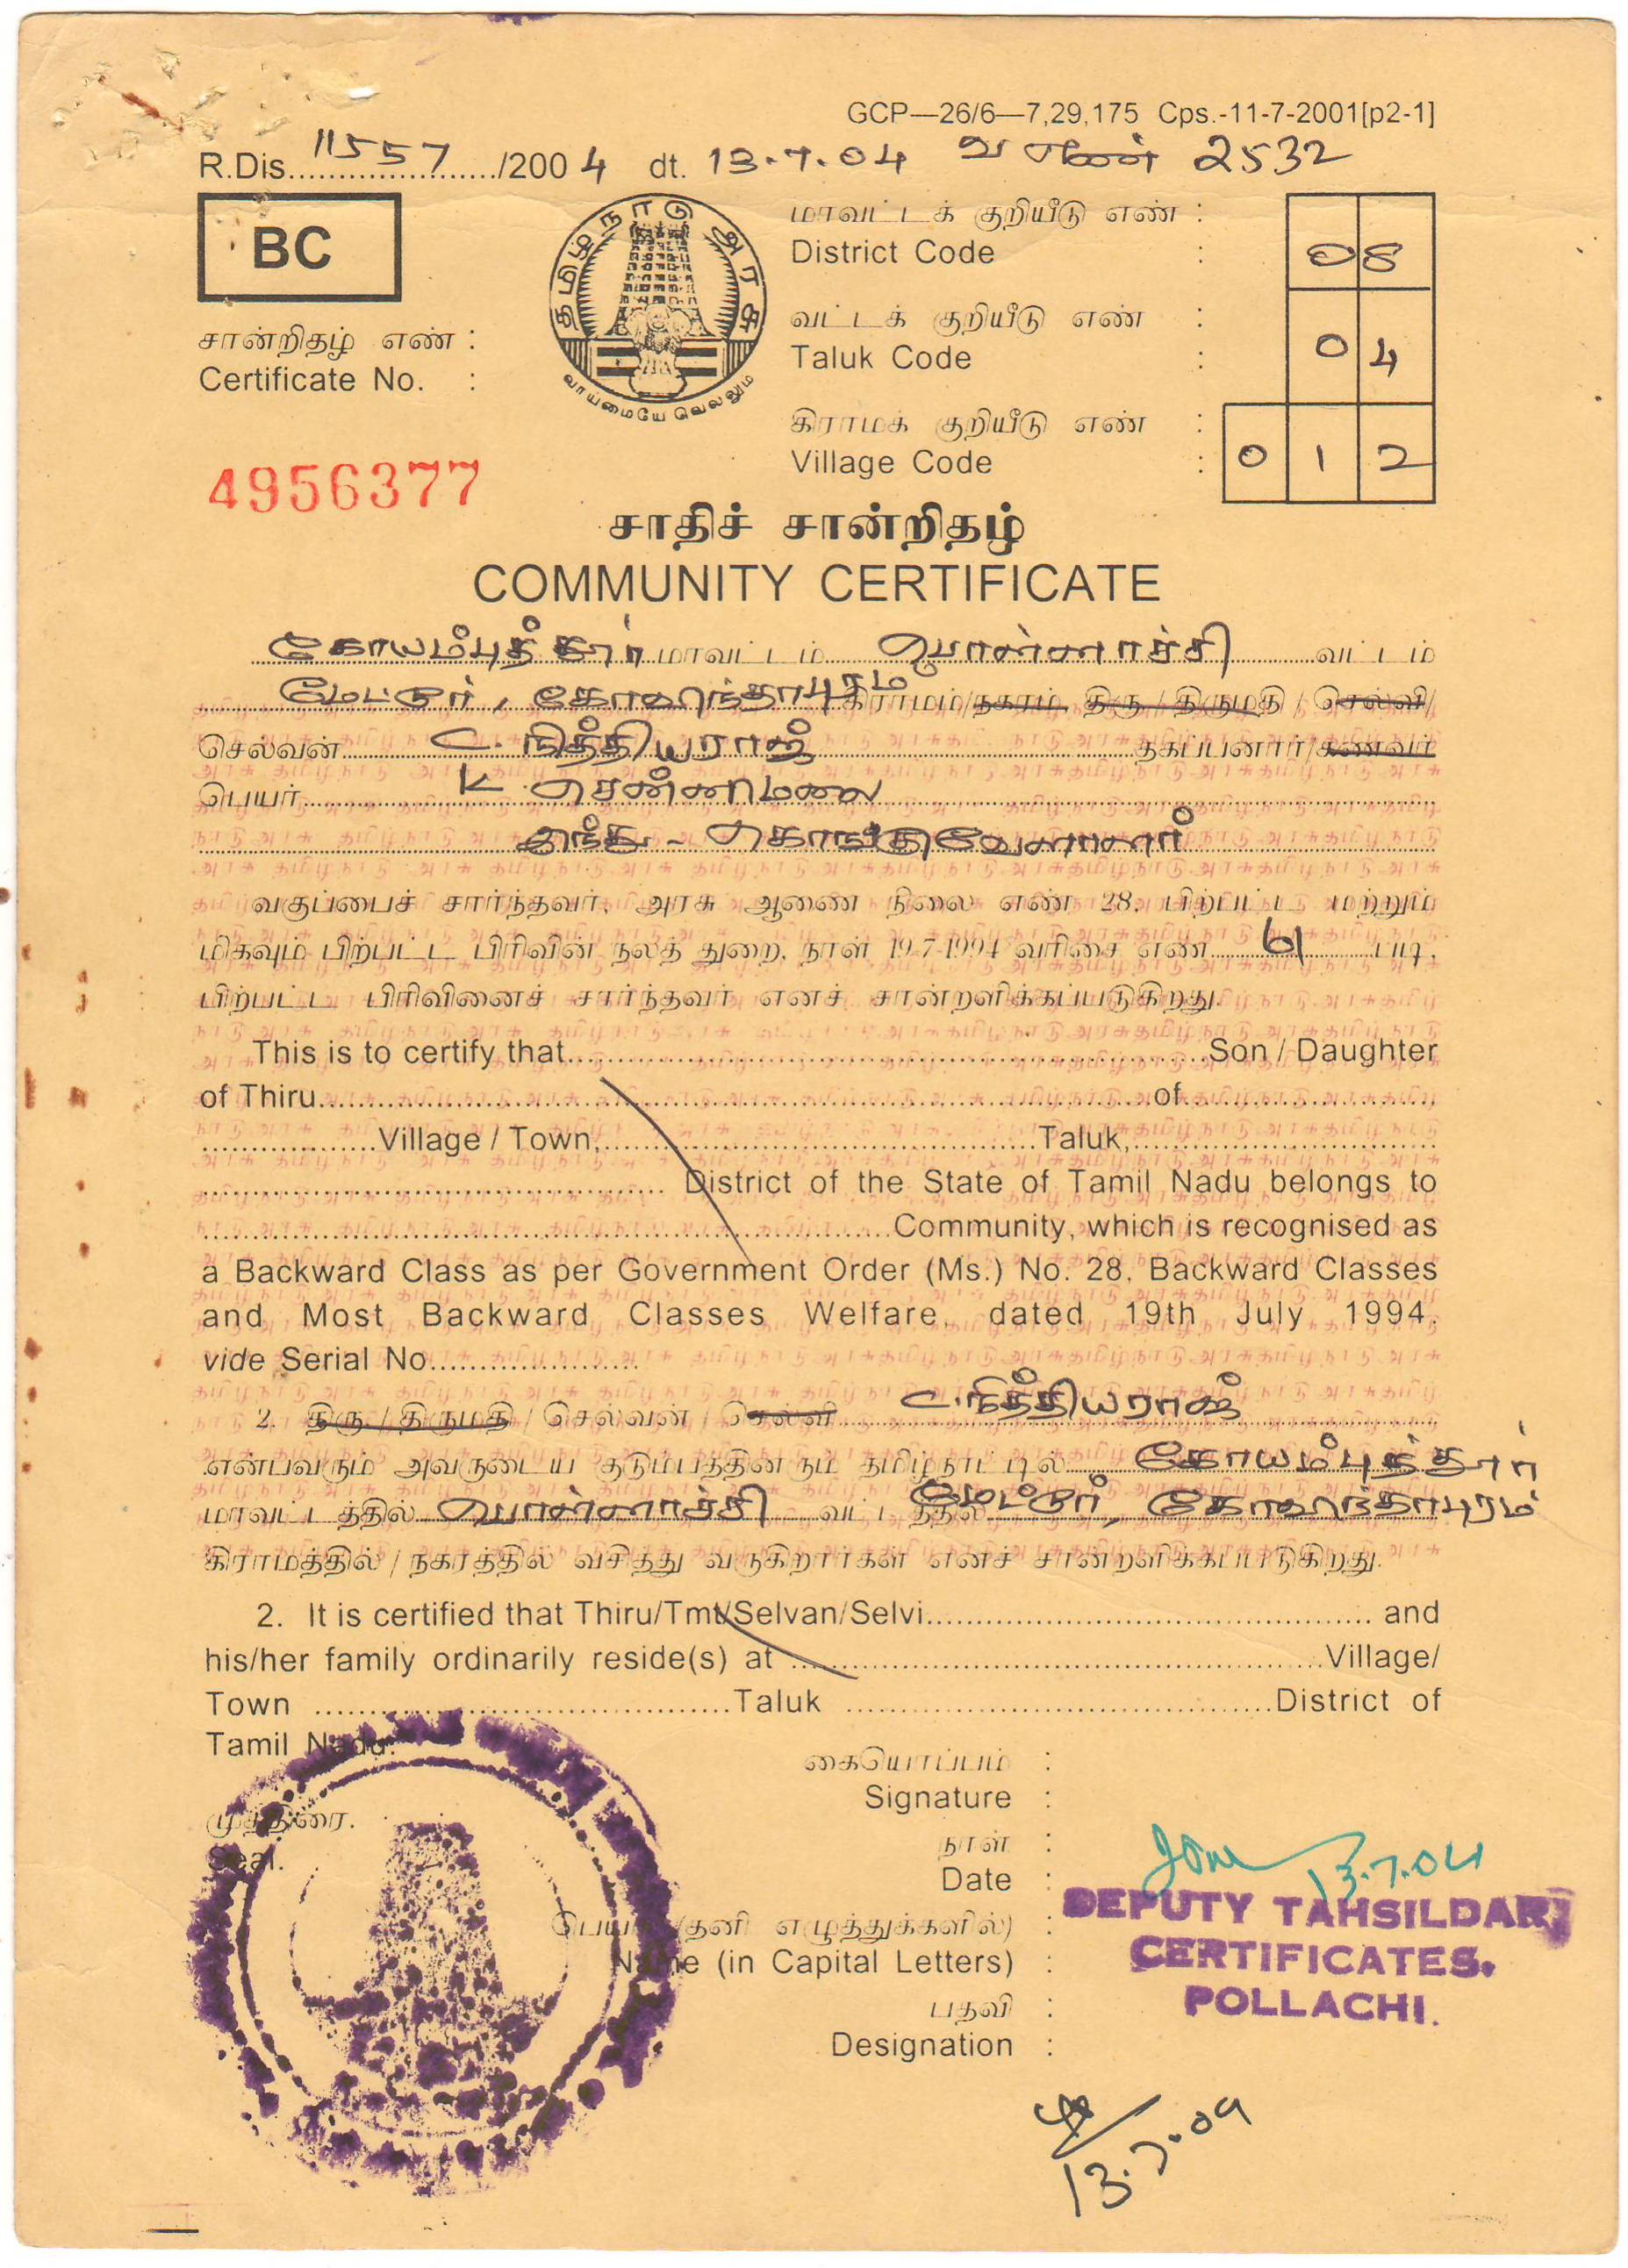 GCP—26/6—7,29,175 Cps.-11-7-2001[p2-1]
R.Dis....11557..../2004 dt. 13.7.04 வ எண் 2532
BC
தமிழ்நாடு அரசு
வாய்மையே வெல்லும்
மாவட்டக் குறியீடு எண் :
District Code : 08
வட்டக் குறியீடு எண் :
Taluk Code : 04
கிராமக் குறியீடு எண் :
Village Code : 012
சான்றிதழ் எண் :
Certificate No. :
4956377
சாதிச் சான்றிதழ்
COMMUNITY CERTIFICATE
கோயம்புத்தூர் மாவட்டம் பொள்ளாச்சி வட்டம்
மேட்டூர், கோவிந்தாபுரம் கிராமம்/நகரம் திரு / திருமதி / செல்வி/
செல்வன் C. நித்தியராஜ் தகப்பனார்/கணவர்
பெயர் K சென்னிமலை
இந்து - கொங்குவேளாளர்
வகுப்பைச் சார்ந்தவர். அரசு ஆணை நிலை எண் 28, பிற்பட்ட மற்றும்
மிகவும் பிற்பட்ட பிரிவின் நலத் துறை, நாள் 19-7-1994 வரிசை எண் 61 படி,
பிற்பட்ட பிரிவினைச் சார்ந்தவர் எனச் சான்றளிக்கப்படுகிறது.
This is to certify that.......... Son / Daughter
of Thiru.......... of..........
..........Village / Town,..........Taluk,..........
.......... District of the State of Tamil Nadu belongs to
..........Community, which is recognised as
a Backward Class as per Government Order (Ms.) No. 28, Backward Classes
and Most Backward Classes Welfare, dated 19th July 1994,
vide Serial No..........
2. திரு / திருமதி / செல்வன் / செல்வி C.நித்தியராஜ்
என்பவரும் அவருடைய குடும்பத்தினரும் தமிழ்நாட்டில் கோயம்புத்தூர்
மாவட்டத்தில் பொள்ளாச்சி வட்டத்தில் மேட்டூர், கோவிந்தாபுரம்
கிராமத்தில் / நகரத்தில் வசித்து வருகிறார்கள் எனச் சான்றளிக்கப்படுகிறது.
2. It is certified that Thiru/Tmt/Selvan/Selvi.......... and
his/her family ordinarily reside(s) at ..........Village/
Town ..........Taluk ..........District of
Tamil Nadu.
கையொப்பம் :
Signature :
முத்திரை.
Seal.
நாள் :
Date : 13.7.04
பெயர் (தனி எழுத்துக்களில்) :
Name (in Capital Letters) :
பதவி :
Designation :
DEPUTY TAHSILDAR,
CERTIFICATES.
POLLACHI.
13.7.04